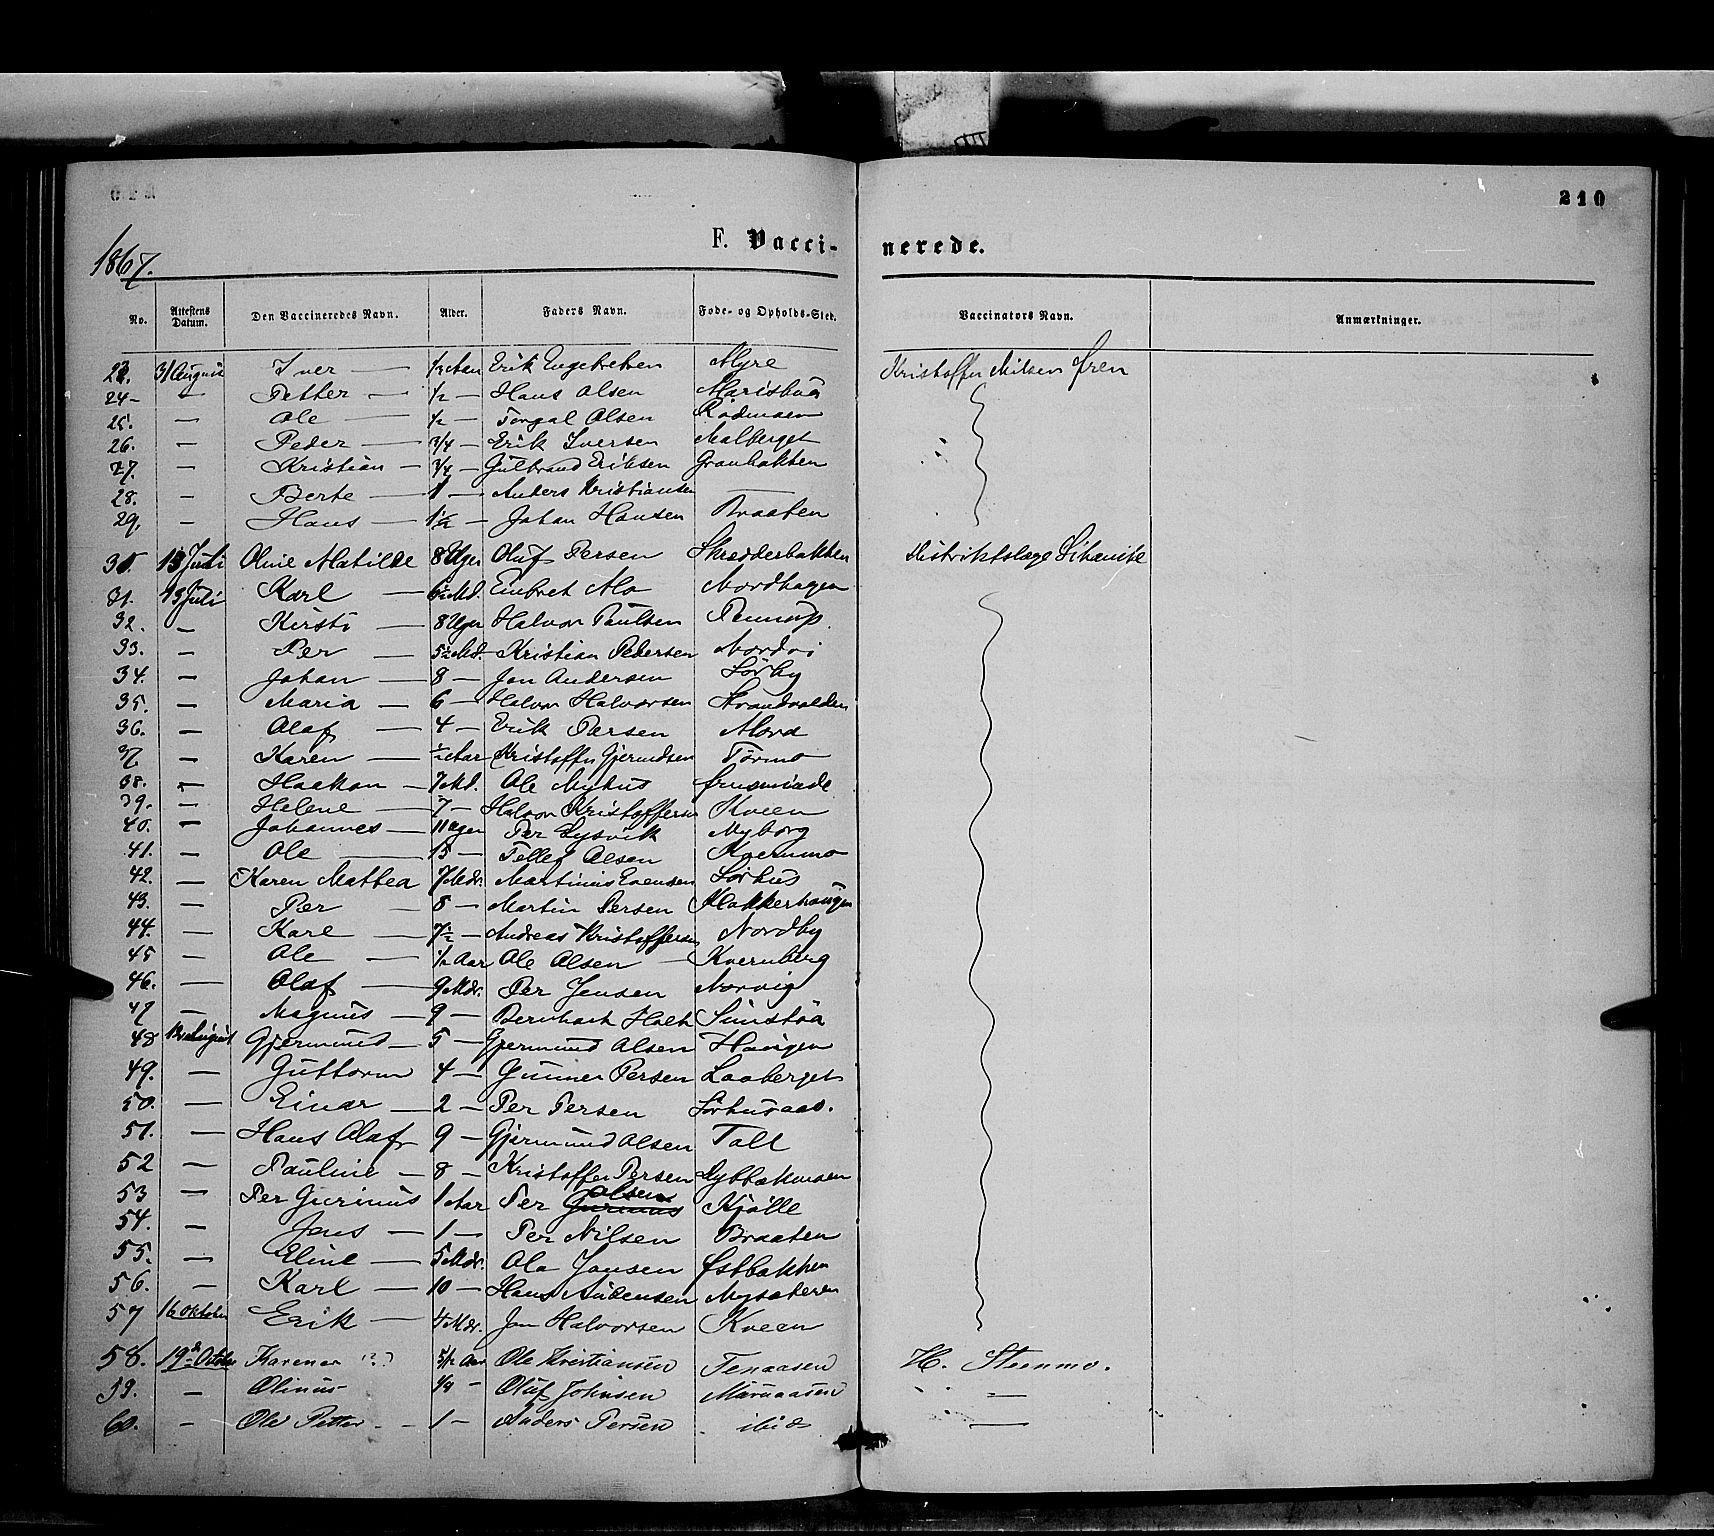 210
1867.
F. Vacci- nerede.
No. Attestens Datum. Den Vaccineredes Navn. Alder. Faders Navn. Føde- og Opholds-Sted. Vaccinators Navn. Anmærkninger.
23. 31 August Iver — 1/2 Aar Erik Engebretsen Myre Kristoffer Nilsen Øren
24 — Petter — 1/2 — Hans Olsen
25. — Ole — 1/2 — Torgal Olsen
26. — Peder — 3/4 — Erik Iversen Malberget
27. — Kristian — 3/4 — Gulbrand Eriksen Granbakken
28. — Berte — 1 — Anders Kristiansen —
29. — Hans — 1 1/2 — Johan Hansen Braaten
30. 13 Juli Oline Matilde 8 Uger Oluf Persen Skredderbakken Distriktslæge
31. 13 Juli Karl — 6 1/2 Md. Embret Mo Nordhagen
32. — Kirsti — 8 Uger Halvor Paulsen
33. — Per — 5 1/2 Md. Kristian Pedersen Nordvi
34. — Johan — 8 — Jon Andersen Sørby
35. — Maria — 6 — Halvor Halvorsen Strandvolden
36. — Olaf — 4 — Erik Persen Mora
37 — Karen — 1/2 Aar Kristoffer Gjermundsen Tørmo
38. — Haakon — 7 Md. Ole Myhus
39. — Helene — 7 — Halvor Kristoffersen Kveen
40. — Johannes — 11 Uger Per Lysvik Nyborg
41. — Ole — 15 — Tellef Olsen Kvernmo
42. — Karen Mattea 7 Mdr. Martinus Evensen Sørhus
43. — Per — 8 — Martin Persen Klokkerhaugen
44. — Karl — 7 1/2 — Andreas Kristoffersen Nordby
45 — Ole — 1/2 Aar Ole Olsen — Kvernberg
46. — Olaf — 9 Mdr. Per Jensen Norvig
47 — Magnus — 9 — Bernhart Holt Simstøa
48 August Gjermund — 5 — Gjermund Olsen Haugen
49. — Guttorm 4 — Gunner Persen Laaberget
50. — Einar — 2 — Per Persen Sørhusaas.
51. — Hans Olaf 9 — Gjermund Olsen Toll
52 — Pauline — 8 — Kristoffer Persen
53 — Per Gurinus 1 Aar Per Gurinus Olsen Kjølle
54. — Jens — 1 — Per Nilsen Braaten
55. — Eline — 5 Mdr. Ola Jonsen Østbakken
56. — Karl — 10 — Hans Audensen Nysæteren
57 16 Oktober Erik — 4 Mdr. Jon Halvorsen Kveen
58. 19de October Karenar (?) 5/12 Aar Ole Kristiansen Tenaasen H. Steenmo.
59. — Olinus 1/4 — Oluf Johnsen Moenaasen —
60. — Ole Petter — 1 — Anders Persen ibid —